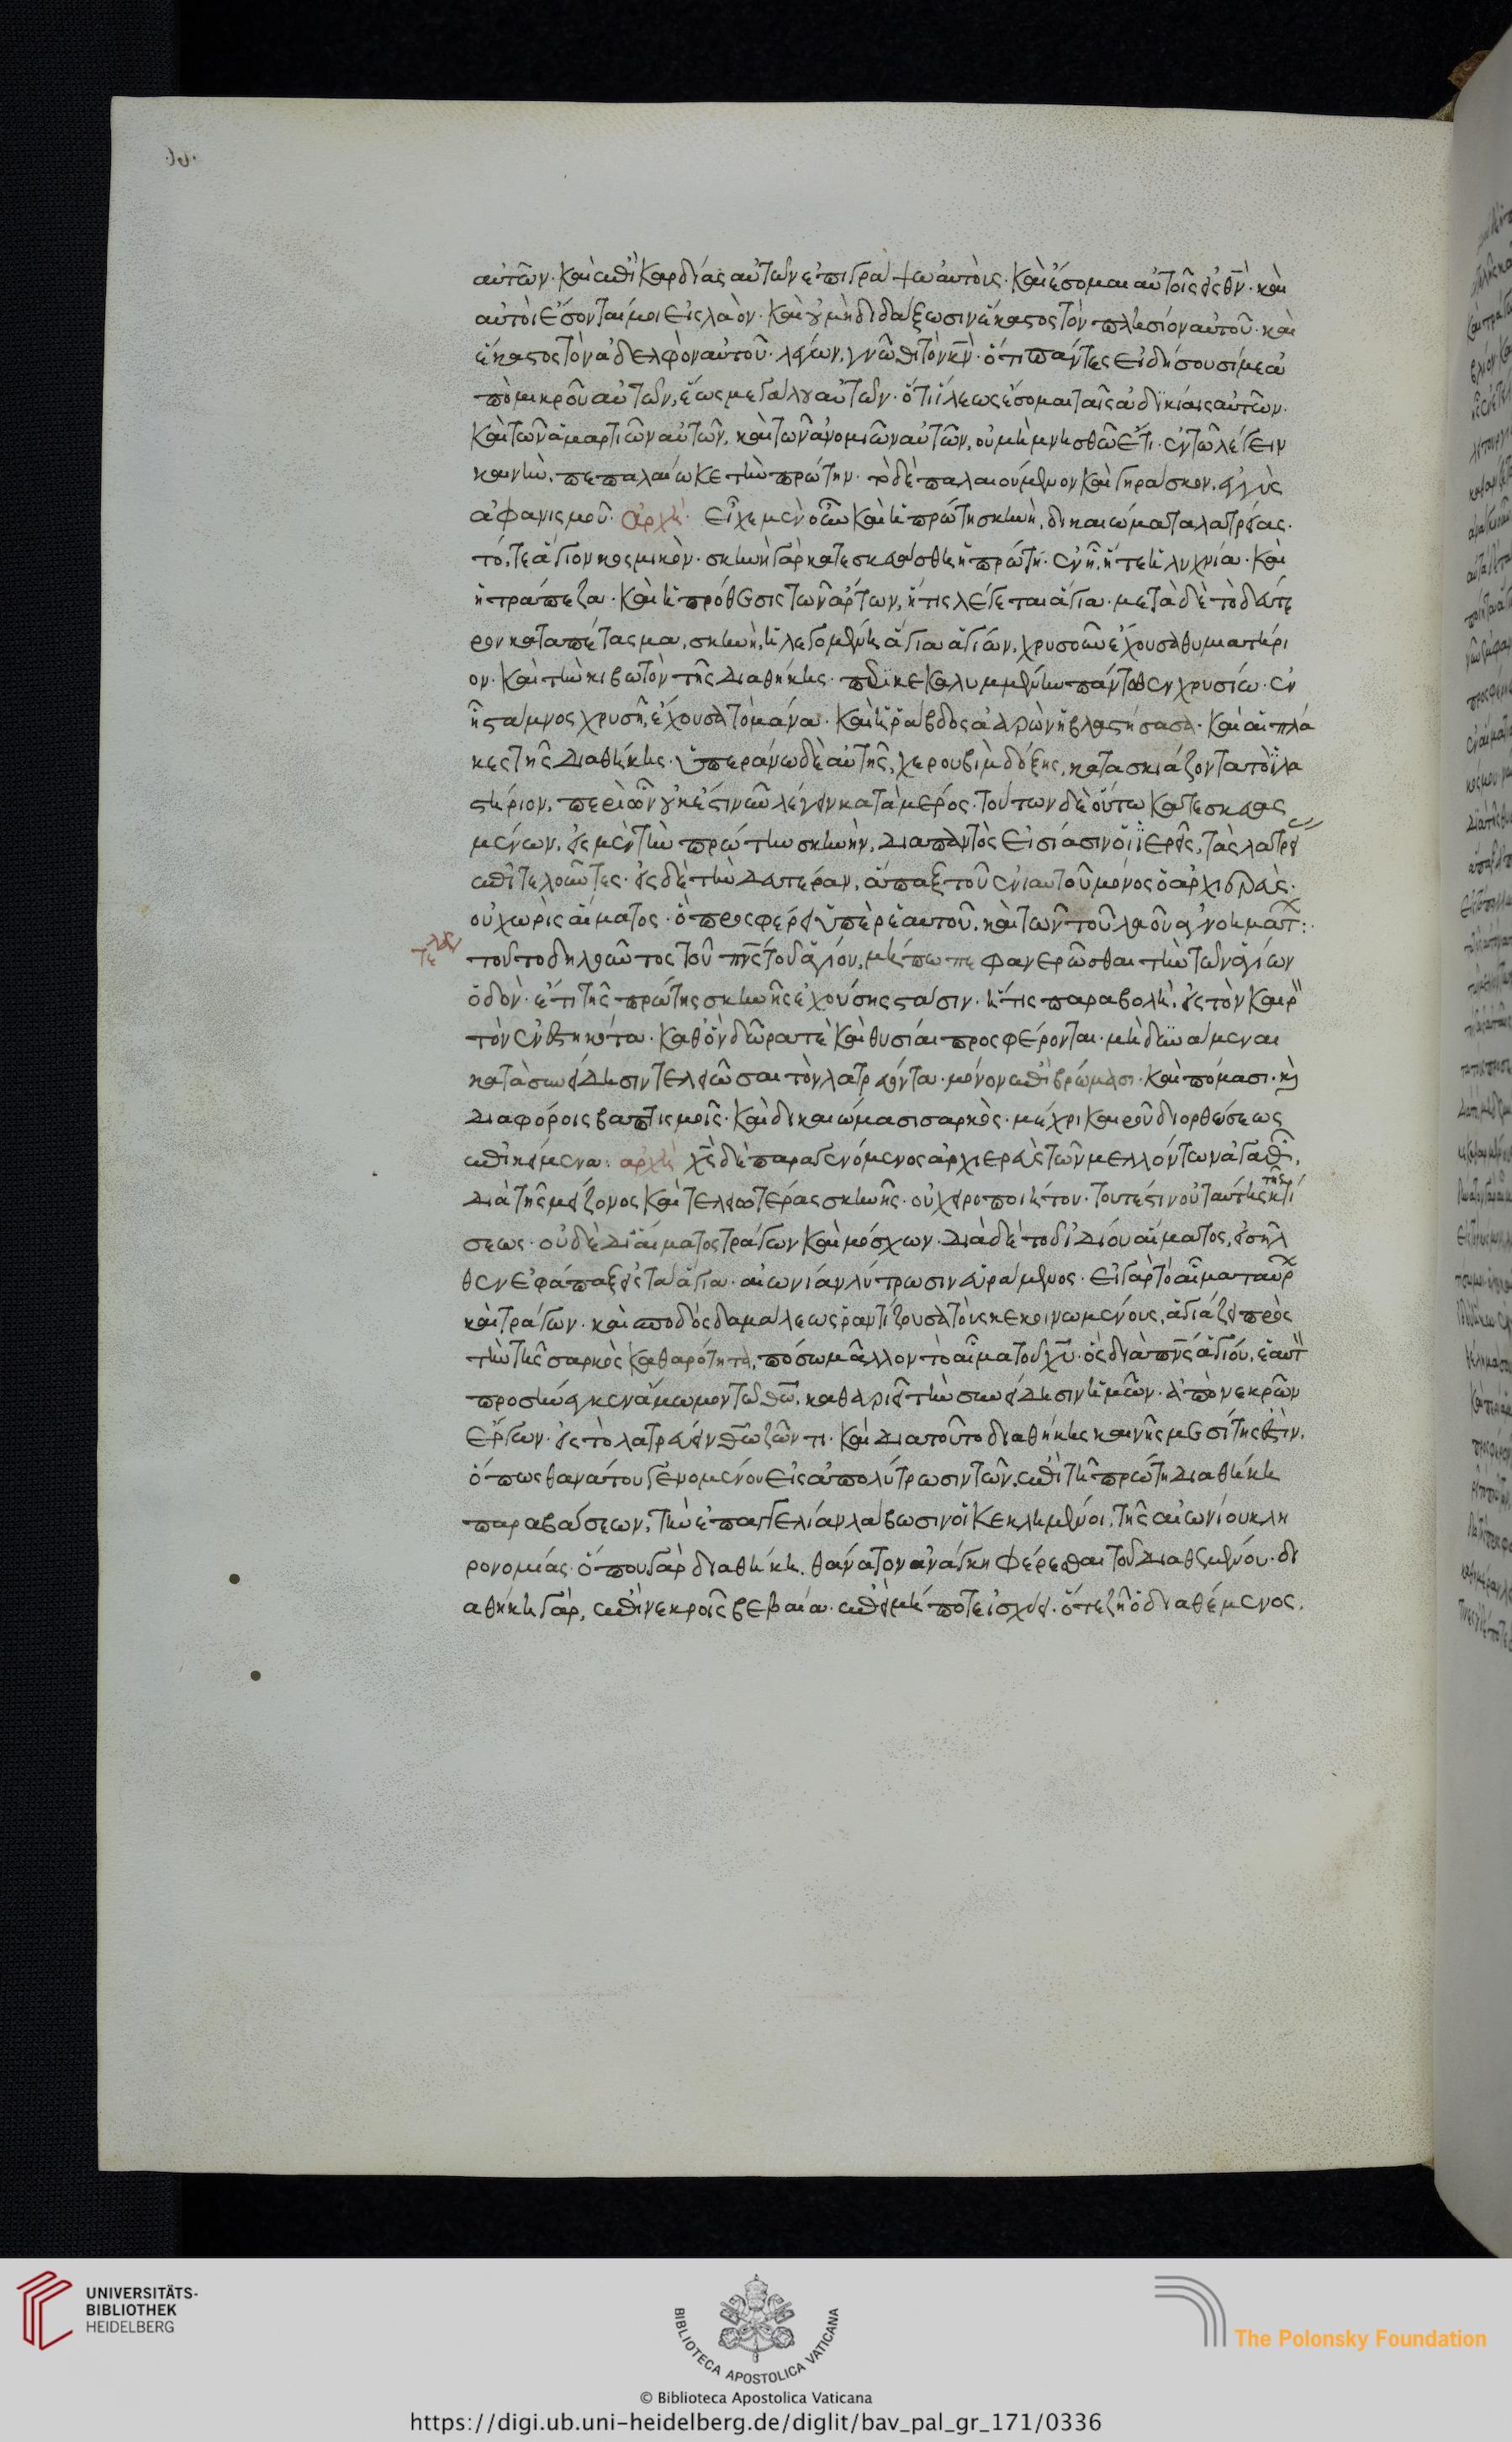 αὐτῶν· καὶ ἐπὶ καρδίας αὐτῶν ἐπιγράψω αὐτούς· καὶ ἔσομαι αὐτοῖς εἰς θν̅· καὶ
αὐτοὶ ἔσονταί μοι εἰς λαόν· καὶ οὐ μὴ διδάξωσιν ἕκαστος τὸν πλησίον αὐτοῦ· καὶ
ἕκαστος τὸν ἀδελφὸν αὐτοῦ· λέγων, γνῶθι τὸν κν̅· ὅτι πάντες εἰδήσουσί με ἀ
πὸ μικροῦ αὐτῶν, ἕως μεγάλου αὐτῶν· ὅτι ἵλεως ἔσομαι ταῖς ἀδικίαις αὐτῶν·
καὶ τῶν ἁμαρτιῶν αὐτῶν, καὶ τῶν ἀνομιῶν αὐτῶν, οὐ μὴ μνησθῶ ἔτι· ἐν τῶ λέγειν
καινὴν, πεπαλαίωκε τὴν πρώτην· τὸ δὲ παλαιούμενον καὶ γηράσκον, ἐγγὺς
ἀφανισμοῦ· ἀρχὴ· εἶχε μὲν οὖν καὶ ἡ πρώτη σκηνὴ, δικαιώματα λατρείας·
τό, τε ἅγιον κοσμικὸν· σκηνὴ γὰρ κατεσκευάσθη ἡ πρώτη· ἐν ᾗ, ἥ τε ἡ λυχνία· καὶ
ἡ τράπεζα· καὶ ἡ πρόθεσις τῶν ἄρτων, ἥτις λέγεται ἅγια· μετὰ δὲ τὸ δεύτε
ρον καταπέτασμα, σκηνὴ, ἡ λεγομένη ἅγια ἁγίων, χρυσοῦν ἔχουσα θυμιατήρι
ον· καὶ τὴν κιβωτὸν τῆς διαθήκης· περικεκαλυμμένην πάντοθεν χρυσίω· ἐν
ᾗ στάμνος χρυσῆ, ἔχουσα τὸ μάνα· καὶ ἡ ῥάβδος ἀαρὼν ἡ βλαστήσασα· καὶ αἱ πλά
κες τῆς διαθήκης· ὑπεράνω δὲ αὐτῆς, χερουβὶμ δόξης, κατασκιάζοντα τὸ ἱλα
στήριον, περὶ ὧν οὐκ ἔστιν νῦν λέγειν κατὰ μέρος· τούτων δὲ οὕτω κατεσκευας
μένων, εἰς μὲν τὴν πρώτην σκηνὴν, διαπαντὸς εἰσίασιν οἱ ἱερεῖς, τὰς λατρείας
ἐπιτελοῦντες· εἰς δὲ τὴν δευτέραν, ἅπαξ τοῦ ἐνιαυτοῦ μόνος ὁ ἀρχιερεὺς·
οὐ χωρὶς αἵματος· ὃ προσφέρει ὑπὲρ ἑαυτοῦ, καὶ τῶν τοῦ λαοῦ ἀγνοημάτων:
τέλος τοῦτο δηλοῦντος τοῦ πνς̅ τοῦ ἁγίου, μήπω πεφανερῶσθαι τὴν τῶν ἁγίων
ὁδὸν· ἔτι τῆς πρώτης σκηνῆς ἐχούσης στάσιν· ἥτις παραβολὴ, εἰς τὸν καιρὸν
τὸν ἐνεστηκότα· καθ ὃν δῶρά τε καὶ θυσίαι προσφέρονται· μὴ δυνάμεναι
κατὰ συνείδησιν τελειῶσαι τὸν λατρεύοντα· μόνον ἐπὶ βρώμασι· καὶ πόμασι· καὶ
διαφόροις βαπτισμοῖς· καὶ δικαιώμασι σαρκὸς· μέχρι καιροῦ διορθώσεως
ἐπικείμενα: ἀρχὴ χς̅ δὲ παραγενόμενος ἀρχιερεὺς τῶν μελλόντων ἀγαθῶν,
διὰ τῆς μείζονος καὶ τελειοτέρας σκηνῆς· οὐ χειροποιήτου· τουτέστιν οὐ ταύτης τῆς κτί
σεως· οὐδὲ δι αἵματος τράγων καὶ μόσχων· διὰ δὲ τοῦ ἰδίου αἵματος, εἰσῆλ
θεν ἐφάπαξ εἰς τὰ ἅγια· αἰωνίαν λύτρωσιν εὑράμενος· εἰ γὰρ τὸ αἷμα ταύρων
καὶ τράγων· καὶ σποδὸς δαμάλεως ῥαντίζουσα τοὺς κεκοινωμένους, ἁγιάζει πρὸς
τὴν τῆς σαρκὸς καθαρότητα, πόσω μᾶλλον τὸ αἷμα τοῦ χυ̅· ὃς διὰ πνς̅ ἁγίου, ἑαυτὸν
προσήνεγκεν ἄμωμον τῶ θω̅, καθαριεῖ τὴν συνείδησιν ἡμῶν· ἀπὸ νεκρῶν
ἔργων· εἰς τὸ λατρεύειν θω̅ ζῶντι· καὶ διατοῦτο διαθήκης καινῆς μεσίτης ἐστὶν,
ὅπως θανάτου γενομένου εἰς ἀπολύτρωσιν τῶν, ἐπὶ τῆ πρώτη διαθήκη
παραβάσεων, τὴν ἐπαγγελίαν λάβωσιν οἱ κεκλημένοι, τῆς αἰωνίου κλη
ρονομίας· ὅπου γὰρ διαθήκη, θάνατον ἀνάγκη φέρεσθαι τοῦ διαθεμένου· δι
αθήκη γὰρ, ἐπὶ νεκροῖς βεβαία· ἐπεὶ μή ποτε ἰσχύει· ὅτε ζῆ ὁ διαθέμενος.
UNIVERSITÄTS-
BIBLIOTHEK
HEIDELBERG
BIBLIOTECA APOSTOLICA VATICANA
© Biblioteca Apostolica Vaticana
The Polonsky Foundation
https://digi.ub.uni-heidelberg.de/diglit/bav_pal_gr_171/0336